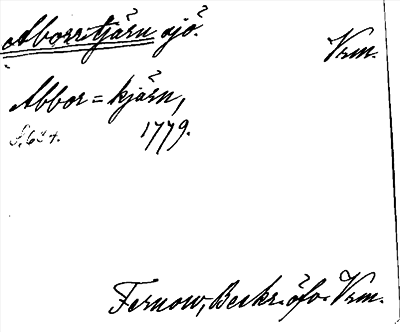 Aborrtjärn sjö.
Vrm.
Abbor=kjärn,
S. 634. 1779.
Fernow, Beskr. öfv. Vrm.